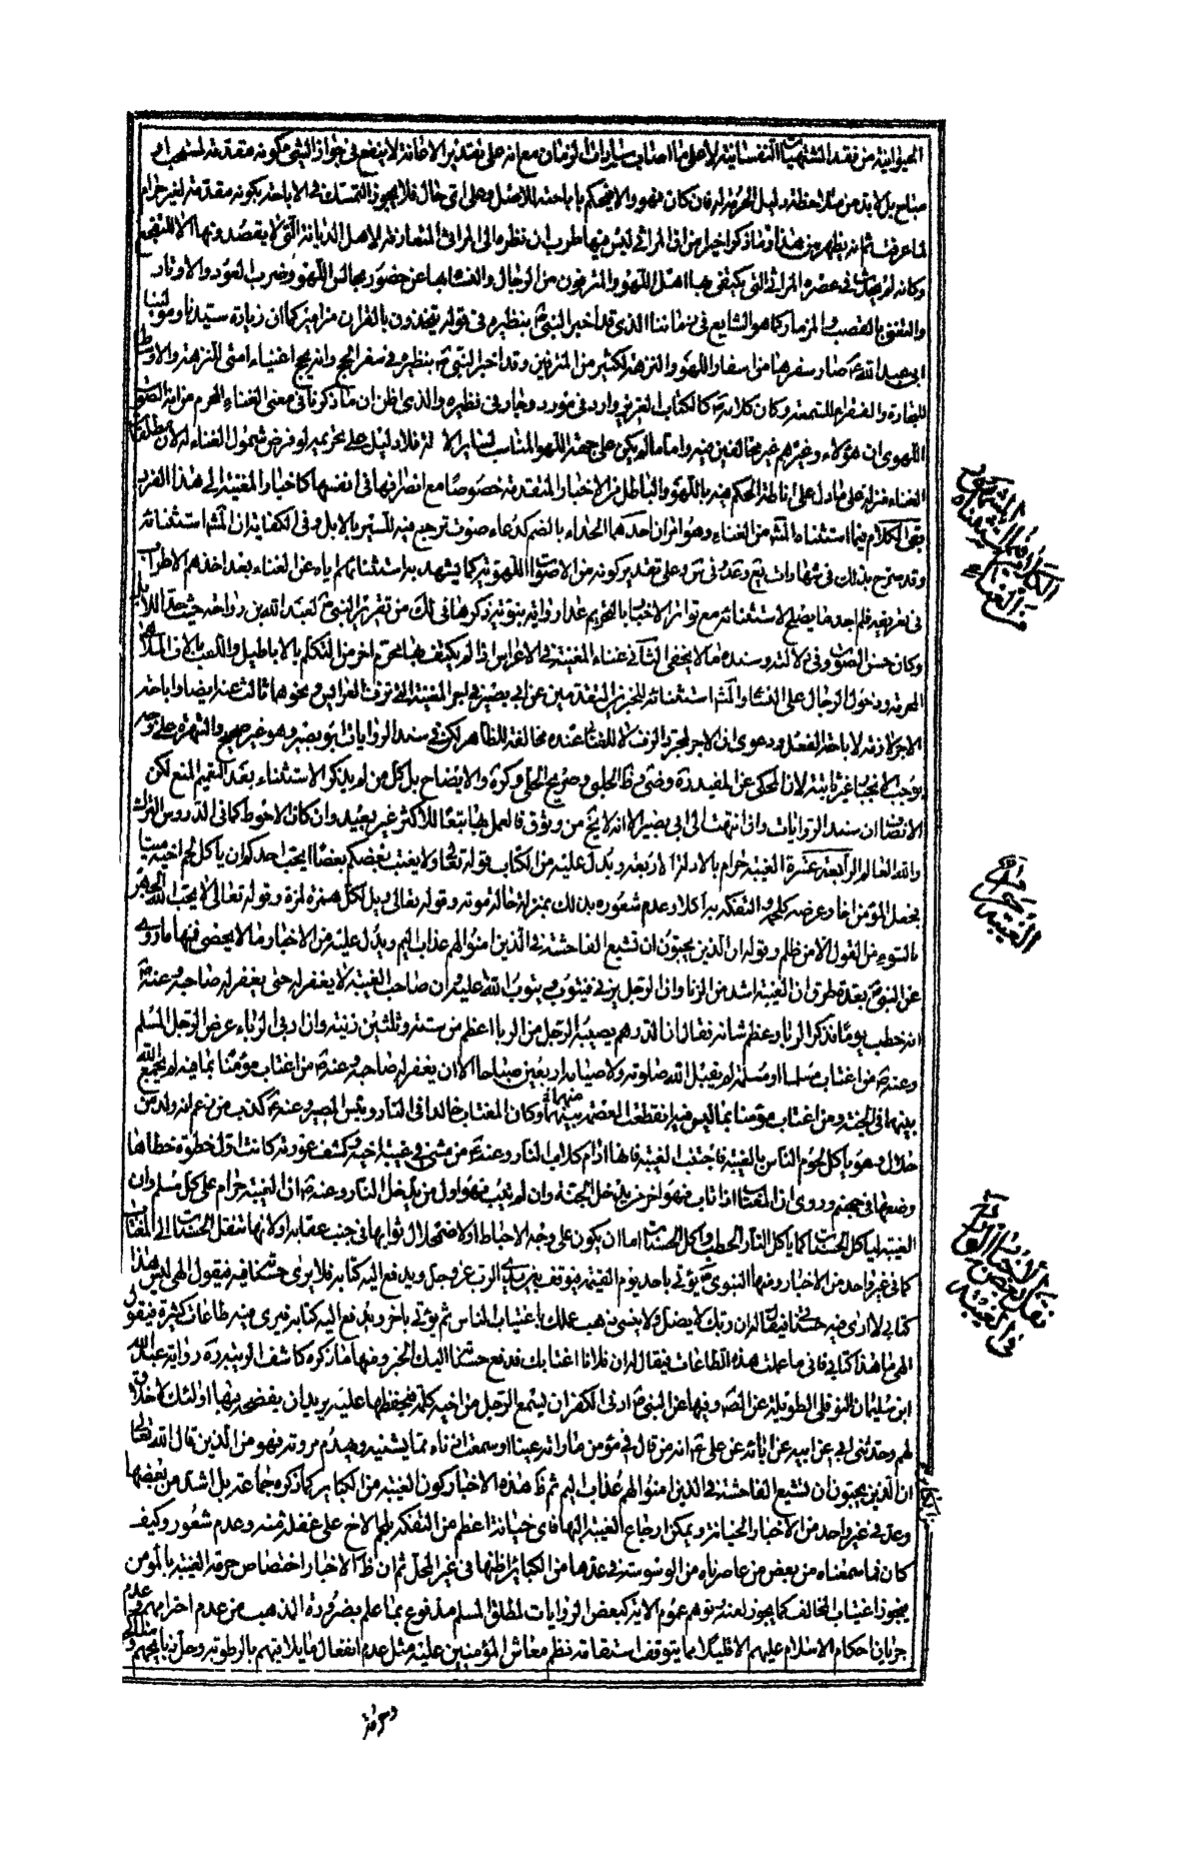 الحيوانية من فقد المشتهيات النفسانية لا على ما اصاب سادات الزمان مع انه على تقدير الاعانة لا ينفع في جواز الشئ كونه مقدمة لمستحب او
مباح بل لا بد من ملاحظة دليل الحرمة له فان كان فهو والا فيحكم باباحته للاصل وعلى اي حال فلا يجوز التمسك في الاباحة بكونه مقدمة لغير حرام
لما عرفت ثم انه يظهر من هذا وما ذكر اخيرا من ان المراثي ليس فيها طرب ان نظره الى المراثي المتعارفة لاهل الديانة التي لا يقصدونها الا للتفجع
وكانه لم يحدث في عصره المراثي التي يكتفي بها اهل اللهو والمترفون من الرجال والنساء بها عن حضور مجالس اللهو وضرب العود والاوتار
والتغني بالقصب والمزمار كما هو الشايع في زماننا الذي قد اخبر النبي ص بنظيره في قوله يتخذون بالقران مزامير كما ان زيارة سيدنا ومولينا
ابي عبد الله ع صار سفرها من اسفار اللهو والنزهة لكثير من المترفين وقد اخبر النبي ص بنظيره في سفر الحج وانه يحج اغنياء امتي للنزهة والاوساط
للتجارة والفقراء للسمعة وكان كلامه ص كالكتاب العزيز وارد في مورد وجار في نظيره والذي اظن ان ما ذكرنا في معنى الغناء المحرم من انه الصوت
اللهوي ان هؤلاء وغيرهم غير مخالفين فيه واما ما لم يكن على جهة اللهو المناسب لساير الاته فلا دليل على تحريمه لو فرض شمول الغناء له لان مطلقات
الغناء منزلة على ما دل على اناطة الحكم فيه باللهو والباطل من الاخبار المتقدمة خصوصا مع انصرافها في انفسها كاخبار المغنية الى هذا الفرد
بقي الكلام فيما استثناه المشه من الغناء وهو امران احدهما الحداء بالضم كدعاء صوت ترجيع فيه للسير بالابل وفي الكفاية ان المشه استثنائه
وقد صرح بذلك في شهادات يع وعد وفي س وعلى تقدير كونه من الاصوات اللهوية كما يشهد به استثنائهم اياه عن الغناء بعد اخذهم الاطراب
في تعريفه فلم اجد ما يصلح لاستثنائه مع تواتر الاخبار بالتحريم عدا رواية نبوية ذكرها في لك من تقرير النبي ص لعبد الله بن رواحة حيث حدا للابل
وكان حسن الصوت وفي دلالته وسنده ما لا يخفى الثاني غناء المغنية في الاعراس اذا لم يكتنف بها محرم اخر من التكلم بالاباطيل واللعب بالات الملاهي
المحرمة ودخول الرجال على النساء والمشه استثنائه للخبرين المتقدمين عن ابي بصير في اجر المغنية التي تزف العرايس ونحوهما ثالث عنه ايضا واباحة
الاجر لازمة لاباحة الفعل ودعوى ان الاجر لمجرد الزف لا للغناء عنده مخالفة للظاهر لكن في سند الروايات ابو بصير وهو غير صحيح والشهرة على وجه
يوجب الانجبار غير ثابتة لان المحكي عن المفيد ره وضي وظ الحلبي وصريح الحلي وكرة والايضاح بل كل من لم يذكر الاستثناء بعد التعميم المنع لكن
الانصاف ان سند الروايات وان انتهت الى ابي بصير الا انه لا يخ من وثوق فالعمل بها تبعا للاكثر غير بعيد وان كان الاحوط كما في الدروس الترك
والله العالم الرابعة عشرة الغيبة حرام بالادلة الاربعة ويدل عليه من الكتاب قوله تعالى ولا يغتب بعضكم بعضا ايحب احدكم ان ياكل لحم اخيه ميتا
بجعل المؤمن اخا وعرضه كلحمه والتفكه به اكلا وعدم شعوره بذلك بمنزلة حالة موته وقوله تعالى ويل لكل همزة لمزة وقوله تعالى لا يحب الله الجهر
بالسوء من القول الا من ظلم وقوله ان الذين يحبون ان تشيع الفاحشة في الذين امنوا لهم عذاب اليم ويدل عليه من الاخبار ما لا يحصى فمنها ما روي
عن النبي ص بعدة طرق ان الغيبة اشد من الزنا وان الرجل يزني فيتوب ويتوب الله عليه وان صاحب الغيبة لا يغفر له حتى يغفر له صاحبه وعنه ص
انه خطب يوما فذكر الربا وعظم شانه فقال ان الدرهم يصيبه الرجل من الربا اعظم من ستة وثلثين زنية وان اربى الرباء عرض الرجل المسلم
وعنه ص من اغتاب مسلما او مسلمة لم يقبل الله صلوته ولا صيامه اربعين صباحا الا ان يغفر له صاحبه وعنه ص من اغتاب مؤمنا بما فيه لم يجمع الله
بينهما في الجنة ومن اغتاب مؤمنا بما ليس فيه انقطعت العصمة بينهما وكان المغتاب خالدا في النار وبئس المصير وعنه ع كذب من زعم انه ولد من
حلال وهو ياكل لحوم الناس بالغيبة فاجتنب الغيبة فانها ادام كلاب النار وعنه ع من مشى في غيبة اخيه وكشف عورته كانت اول خطوة خطاها
وضعها في جهنم وروي ان المغتاب اذا تاب فهو اخر من يدخل الجنة وان لم يتب فهو اول من يدخل النار وعنه ص ان الغيبة حرام على كل مسلم وان
الغيبة لياكل الحسنات كما ياكل النار الحطب واكل الحسنات اما ان يكون على وجه الاحباط او لاضمحلال ثوابها في جنب عقابه او لانها تنقل الحسنات الى المغتاب
كما في غير واحد من الاخبار ومنها النبوي ص يؤتى باحد يوم القيمة فيوقف بين يدي الرب عز وجل ويدفع اليه كتابه فلا يرى حسناته فيه فيقول الهي ليس هذا
كتابي لا ارى فيه حسناتي فيقال له ان ربك لا يضل ولا ينسى ذهب عملك باغتياب الناس ثم يؤتى باخر ويدفع اليه كتابه فيرى فيه طاعات كثيرة فيقول
الهي ما هذا كتابي فاني ما عملت هذه الطاعات فيقال له ان فلانا اغتابك فدفع حسناته اليك الخبر ومنها ما ذكره كاشف الريبة ره رواية عبد الله
ابن سليمان النوفلي الطويلة عن الصه وفيها عن النبي ص ادنى الكفر ان يسمع الرجل من اخيه كلمة فيحفظها عليه يريد ان يفضحه بها اولئك لا خلاق
لهم وحدثني ابي عن ابيه عن ابائه عن علي ع انه من قال في مؤمن ما راته عيناه او سمعت اذناه مما يشينه ويهدم مروته فهو من الذين قال الله تعالى
ان الذين يحبون ان تشيع الفاحشة في الذين امنوا لهم عذاب اليم ثم ظ هذه الاخبار كون الغيبة من الكبائر كما ذكره جماعة بل اشد من بعضها
وعد في غير واحد من الاخبار الخيانة ويمكن ارجاع الغيبة اليها فاي خيانة اعظم من التفكه بلحم الاخ على غفلة منه وعدم شعور وكيف
كان فما سمعناه من بعض من عاصرناه من الوسوسة في عدها من الكبائر اظنها في غير المحل ثم ان ظ الاخبار اختصاص حرمة الغيبة بالمؤمن
فيجوز اغتياب المخالف كما يجوز لعنه وتوهم عموم الاية كبعض الروايات لمطلق المسلم مدفوع بما علم بضرورة المذهب من عدم احترامهم وعدم
جريان احكام الاسلام عليهم الا قليلا مما يتوقف استقامة نظم معاش المؤمنين عليه مثل عدم انفعال ما يلاقيهم بالرطوبة وحل ذبايحهم ومناكحهم
الكلام فيما استثناه المشهور من الغناء
حرمة الغيبة
نقل الاخبار الواردة في الغيبة